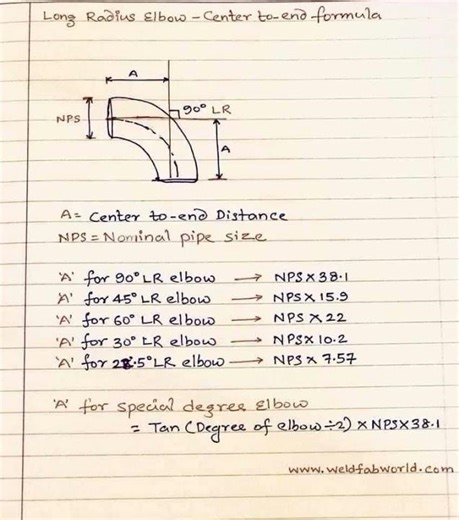 Long Radius Elbow - Center to-end formula
A
90° LR
NPS
A
A = Center to-end Distance
NPS = Nominal pipe size
'A' for 90° LR elbow → NPS X 38.1
'A' for 45° LR elbow → NPS X 15.9
'A' for 60° LR elbow → NPS X 22
'A' for 30° LR elbow → NPS X 10.2
'A' for 22.5° LR elbow → NPS X 7.57
'A' for special degree Elbow
= Tan (Degree of elbow ÷ 2) X NPS X 38.1
www.weldfabworld.com